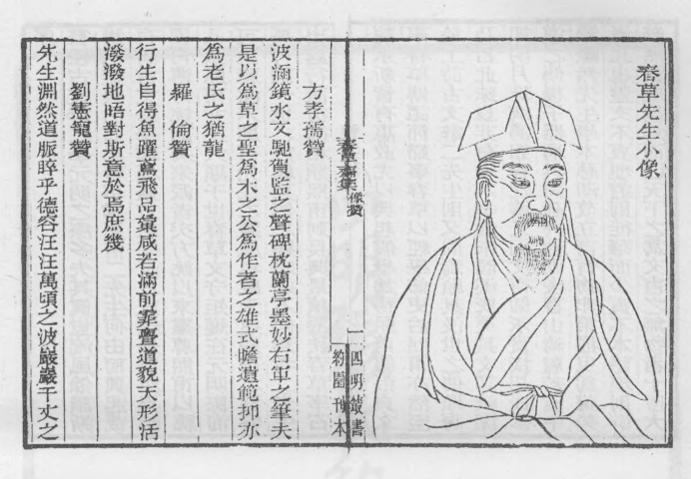 春草先生小像
春草齋集 像贊
一
四明叢書
約園刊本
方孝孺贊
波涵鏡水文馳賀監之聲碑枕蘭亭墨妙右軍之筆夫
是以為草之聖為木之公為作者之雄式瞻遺範抑亦
為老氏之猶龍
羅倫贊
行生自得魚躍鳶飛品彙咸若滿前霏亹道貌天形活
潑潑地晤對斯意於焉庶幾
劉憲寵贊
先生淵然道脈睟乎德容汪汪萬頃之波巖巖千丈之